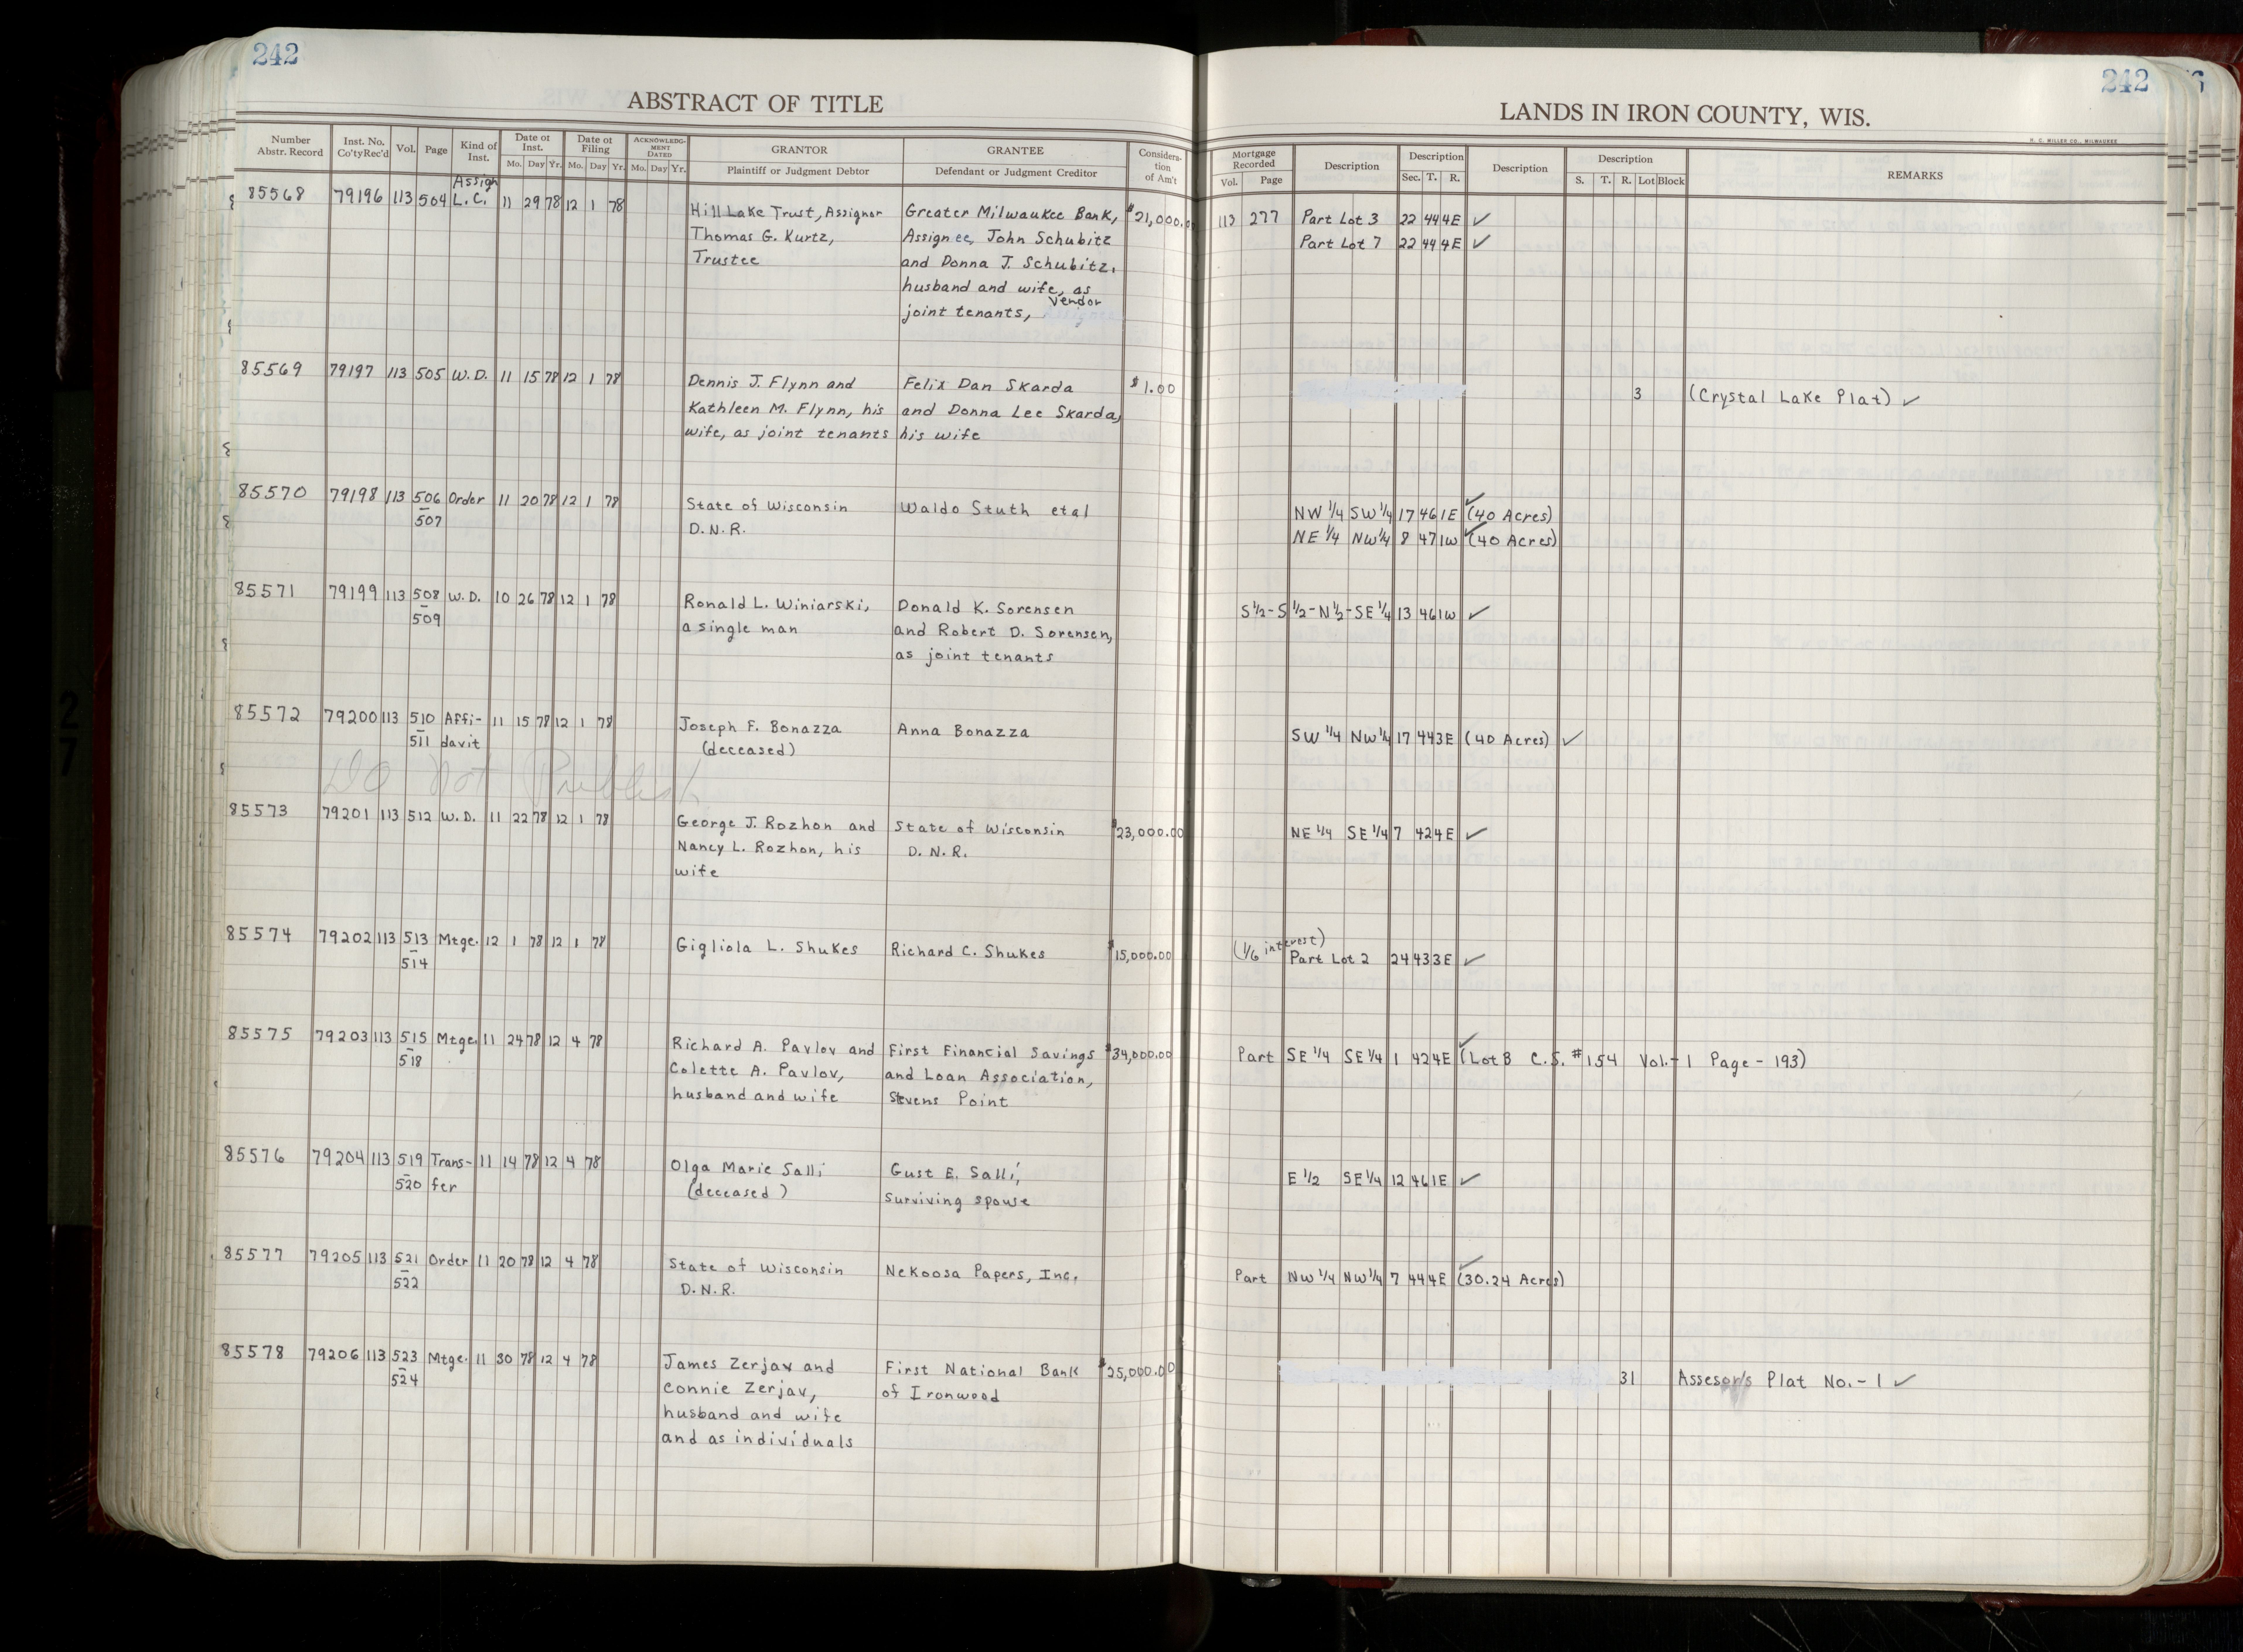 242
ABSTRACT OF TITLE
Number Abstr. Record
Inst. No. Co'tyRec'd
Vol.
Page
Kind of Inst.
Date of Inst.
Mo. Day Yr.
Date of Filing
Mo. Day Yr.
ACKNOWLEDG-MENT DATED
Mo. Day Yr.
GRANTOR
Plaintiff or Judgment Debtor
GRANTEE
Defendant or Judgment Creditor
Considera-tion of Am't
242
LANDS IN IRON COUNTY, WIS.
H. C. MILLER CO., MILWAUKEE
Mortgage Recorded
Vol. Page
Description
Description
Sec. T. R.
Description
Description
S. T. R. Lot Block
REMARKS
Assign
85568 79196 113 504 L.C. 11 29 78 12 1 78
Hill Lake Trust, Assignor Greater Milwaukee Bank, $21,000. 113 277 Part Lot 3 22 44 4E ✓
Thomas G. Kurtz, Assignee, John Schubitz Part Lot 7 22 44 4E ✓
Trustee and Donna J. Schubitz,
husband and wife, as
Vendor
joint tenants,
85569 79197 113 505 W.D. 11 15 78 12 1 78
Dennis J. Flynn and Felix Dan Skarda $1.00 3 (Crystal Lake Plat) ✓
Kathleen M. Flynn, his and Donna Lee Skarda,
wife, as joint tenants his wife
85570 79198 113 506 Order 11 20 78 12 1 78
State of Wisconsin Waldo Stuth etal NW 1/4 SW 1/4 17 46 1E ✓ (40 Acres)
– 507
D.N.R. NE 1/4 NW 1/4 8 47 1W ✓ (40 Acres)
85571 79199 113 508 W.D. 10 26 78 12 1 78
– 509
Ronald L. Winiarski, Donald K. Sorensen S 1/2-S 1/2-N 1/2-SE 1/4 13 46 1W ✓
a single man and Robert D. Sorensen,
as joint tenants
85572 79200 113 510 Affi- 11 15 78 12 1 78
– 511 davit
Joseph F. Bonazza Anna Bonazza SW 1/4 NW 1/4 17 44 3E (40 Acres) ✓
(deceased)
Do Not Publish
85573 79201 113 512 W.D. 11 22 78 12 1 78
George J. Rozhon and State of Wisconsin $23,000.00 NE 1/4 SE 1/4 7 42 4E ✓
Nancy L. Rozhon, his D.N.R.
wife
85574 79202 113 513 Mtge. 12 1 78 12 1 78
– 514
(1/6 interest)
Gigliola L. Shukes Richard C. Shukes $15,000.00 Part Lot 2 24 43 3E ✓
85575 79203 113 515 Mtge. 11 24 78 12 4 78
– 518
Richard A. Pavlov and First Financial Savings $34,000.00 Part SE 1/4 SE 1/4 1 42 4E ✓ (Lot B C.S. #154 Vol.-1 Page-193)
Colette A. Pavlov, and Loan Association,
husband and wife Stevens Point
85576 79204 113 519 Trans- 11 14 78 12 4 78
– 520 fer
Olga Marie Salli Gust E. Salli, E 1/2 SE 1/4 12 46 1E ✓
(deceased) surviving spouse
85577 79205 113 521 Order 11 20 78 12 4 78
– 522
State of Wisconsin Nekoosa Papers, Inc. Part NW 1/4 NW 1/4 7 44 4E ✓ (30.24 Acres)
D.N.R.
85578 79206 113 523 Mtge. 11 30 78 12 4 78
– 524
James Zerjav and First National Bank $25,000.00 31 Assesor's Plat No.-1 ✓
Connie Zerjav, of Ironwood
husband and wife
and as individuals